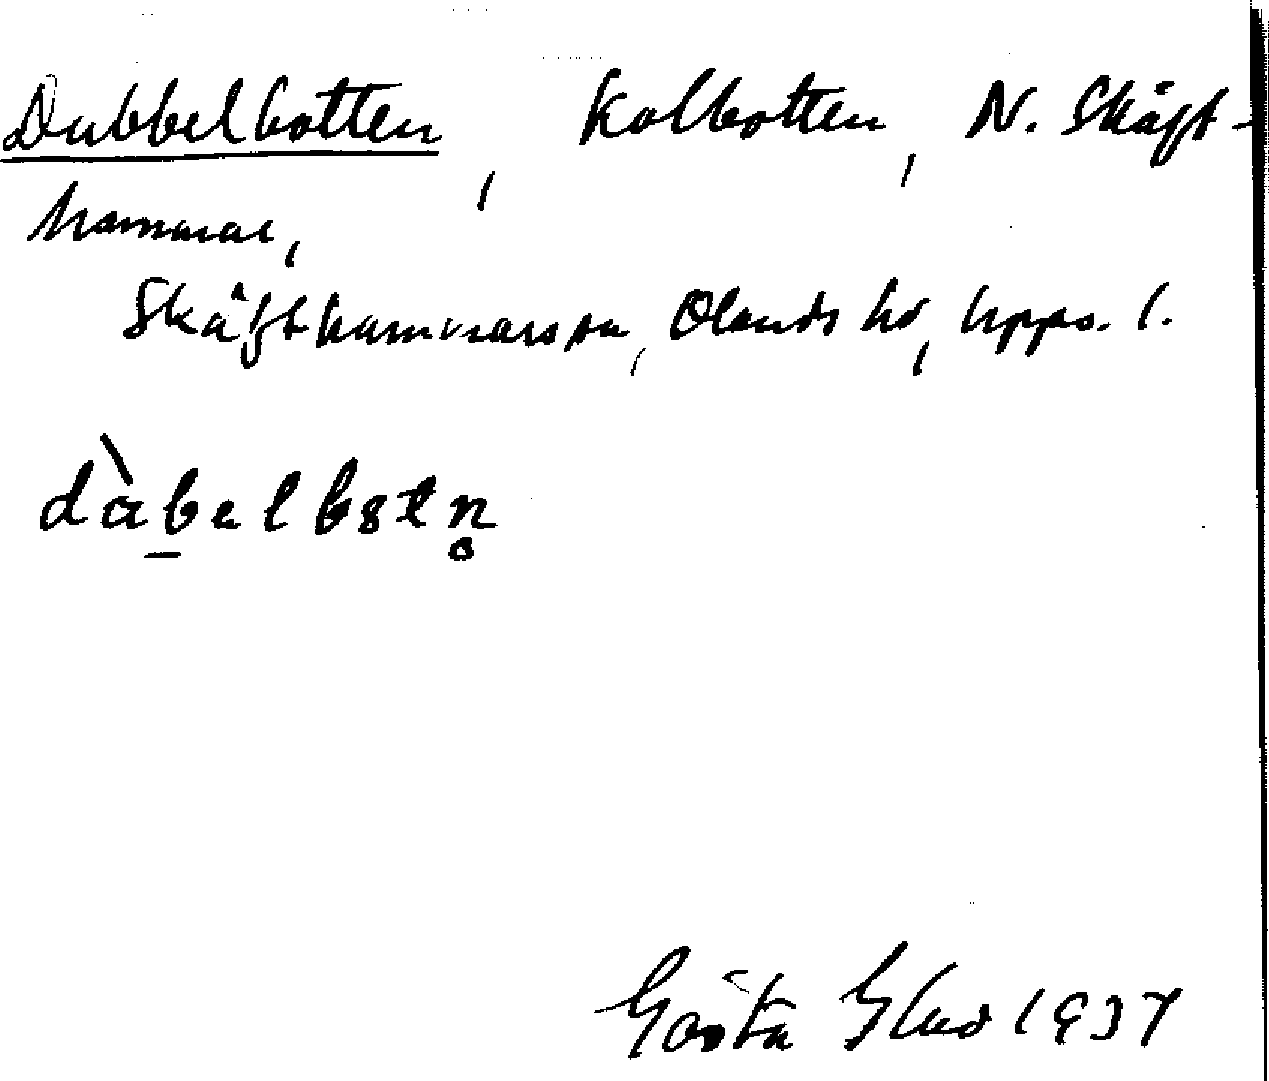 Dubbelbotten, Kolbotten, N. Skäft-
hammar,
Skäfthammars sn, Olands hd, Upps. l.
dàbelbotn̥
Gösta 1937